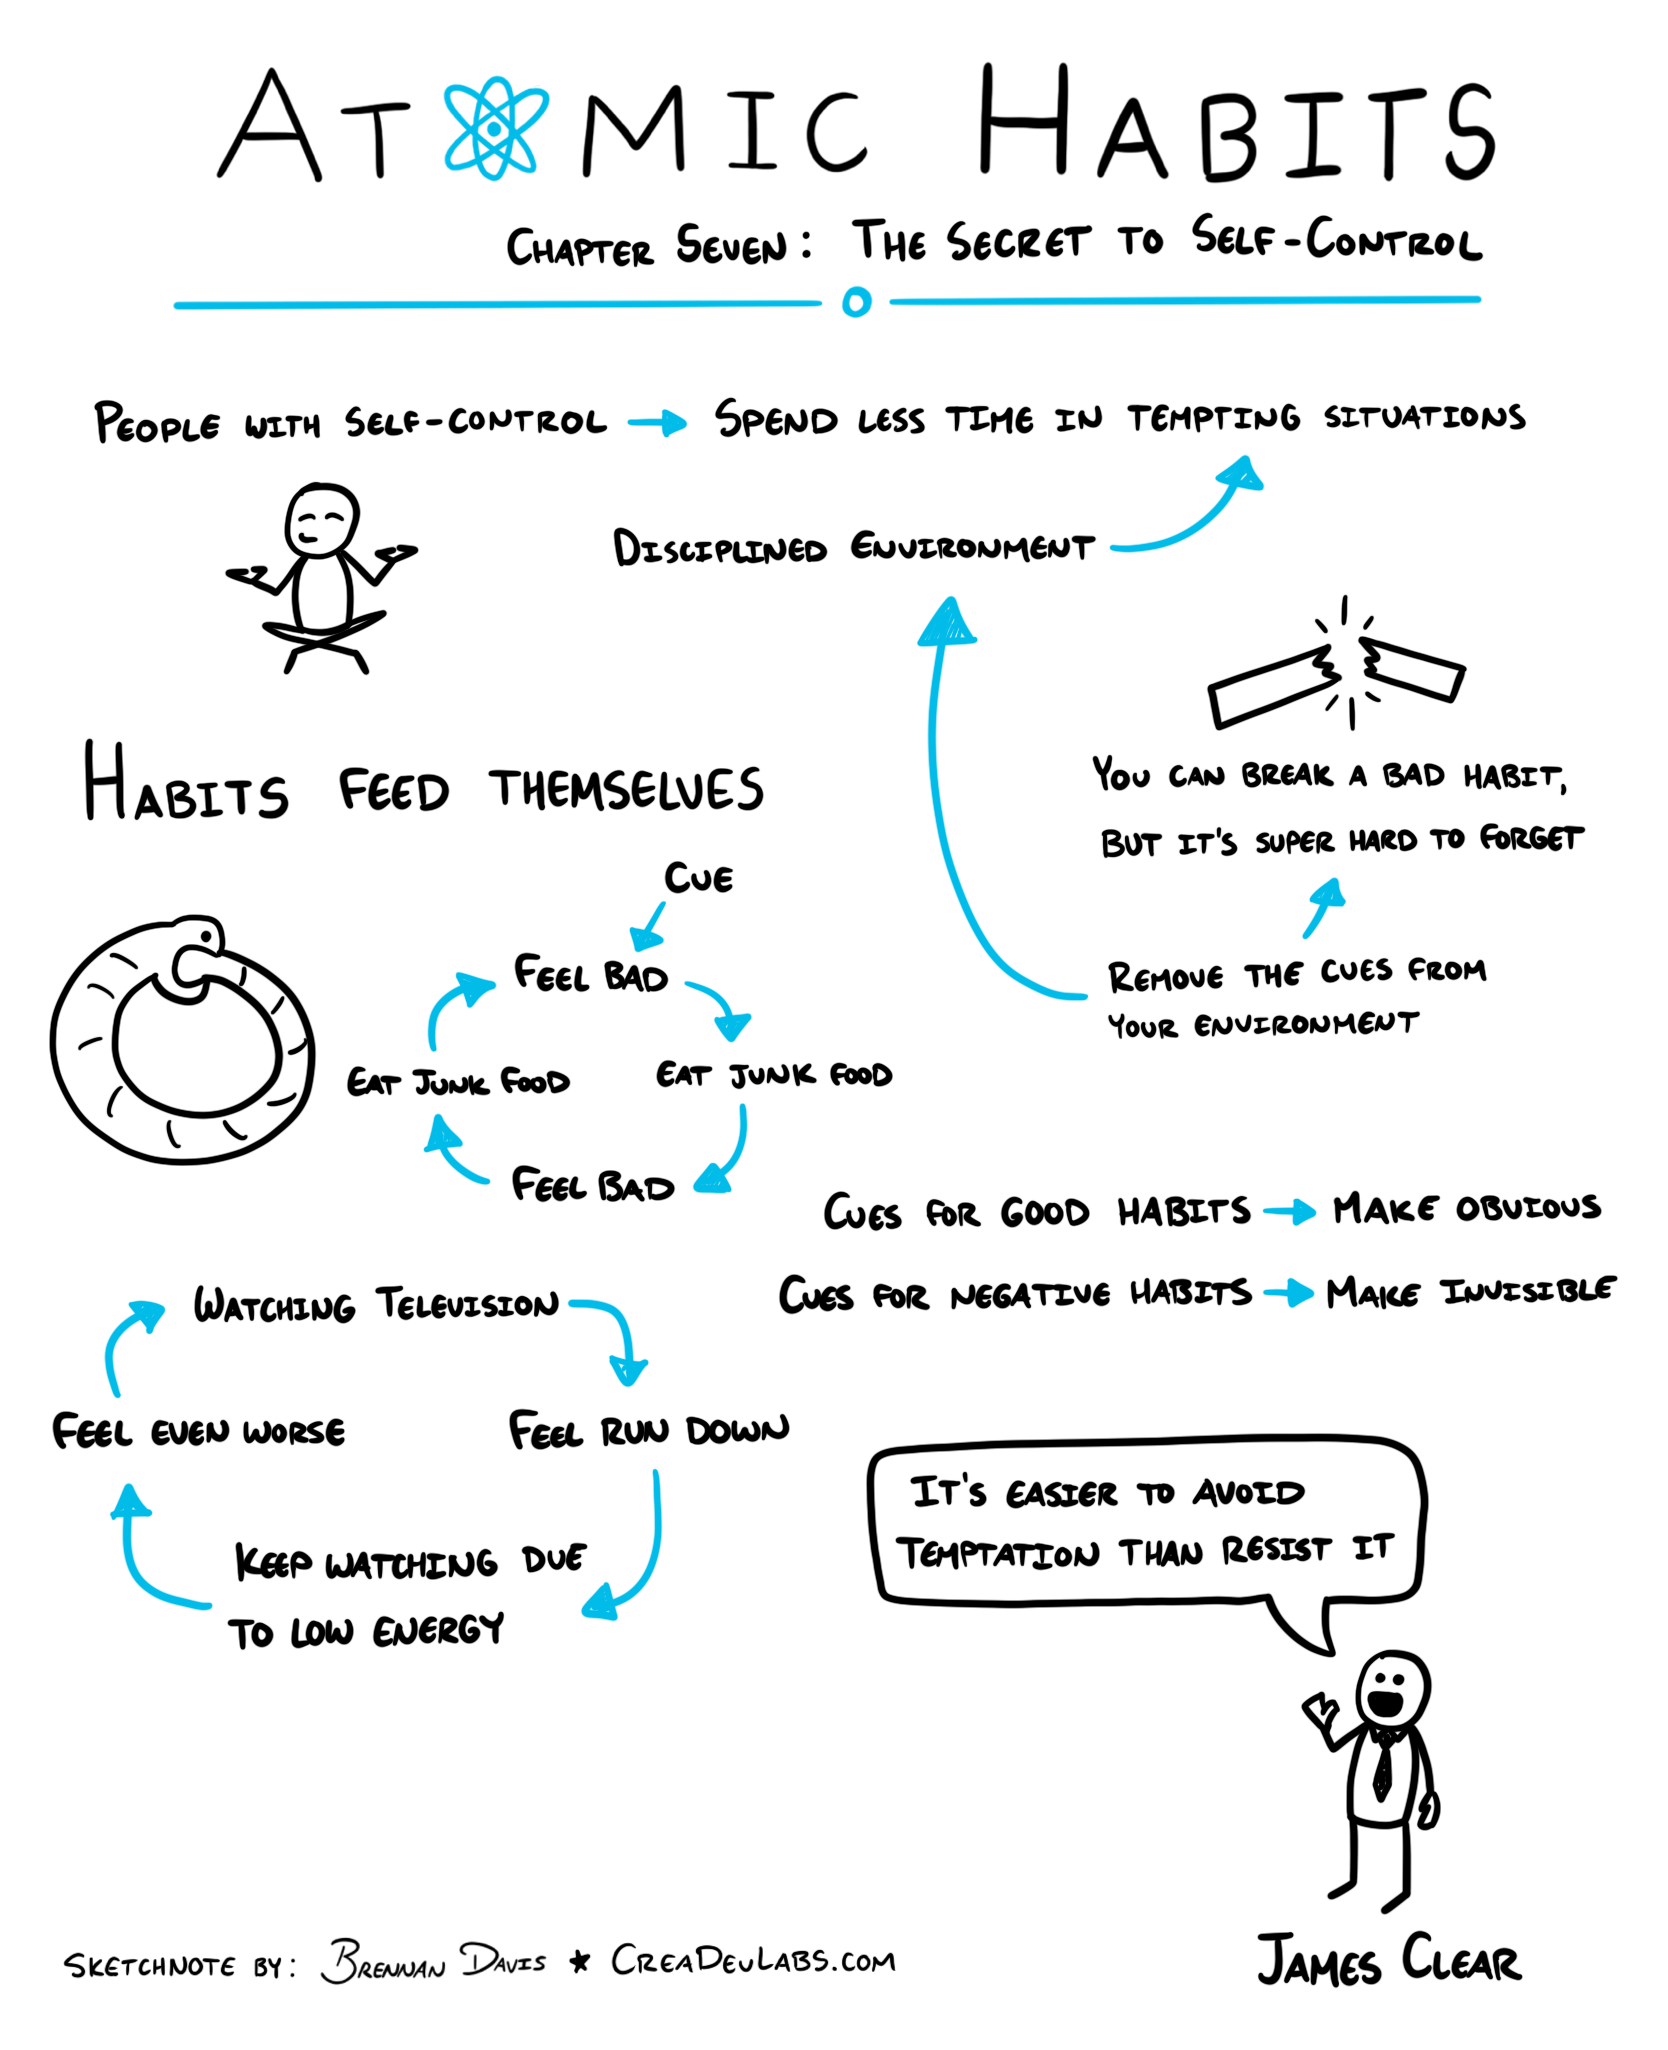 ATOMIC HABITS
CHAPTER SEVEN: THE SECRET TO SELF-CONTROL
PEOPLE WITH SELF-CONTROL → SPEND LESS TIME IN TEMPTING SITUATIONS
DISCIPLINED ENVIRONMENT
YOU CAN BREAK A BAD HABIT,
BUT IT'S SUPER HARD TO FORGET
REMOVE THE CUES FROM
YOUR ENVIRONMENT
HABITS FEED THEMSELVES
CUE
FEEL BAD
EAT JUNK FOOD
FEEL BAD
EAT JUNK FOOD
CUES FOR GOOD HABITS → MAKE OBVIOUS
CUES FOR NEGATIVE HABITS → MAKE INVISIBLE
WATCHING TELEVISION
FEEL RUN DOWN
KEEP WATCHING DUE
TO LOW ENERGY
FEEL EVEN WORSE
IT'S EASIER TO AVOID
TEMPTATION THAN RESIST IT
JAMES CLEAR
SKETCHNOTE BY: BRENNAN DAVIS ★ CREADEVLABS.COM